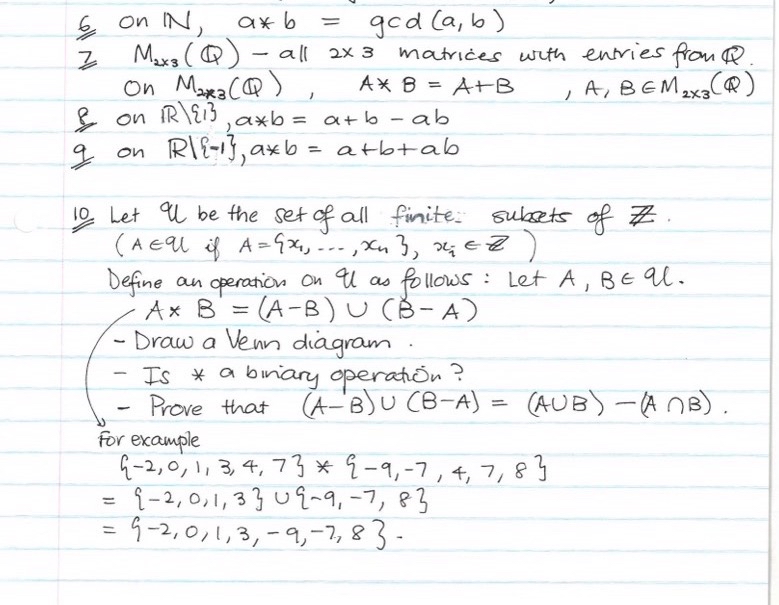 6 on ℕ, a * b = gcd(a, b)
7 M₂ₓ₃(ℚ) – all 2x3 matrices with entries from ℚ.
On M₂ₓ₃(ℚ), A * B = A+B, A, B ∈ M₂ₓ₃(ℚ)
8 on ℝ\{1}, a*b = a+b-ab
9 on ℝ\{-1}, a*b = a+b+ab
10 Let 𝒰 be the set of all finite subsets of ℤ.
(A ∈ 𝒰 if A = {x₁, ..., xₙ}, xᵢ ∈ ℤ)
Define an operation on 𝒰 as follows: Let A, B ∈ 𝒰.
A * B = (A-B) ∪ (B-A)
- Draw a Venn diagram.
- Is * a binary operation?
- Prove that (A-B) ∪ (B-A) = (A∪B) - (A∩B).
For example
{-2, 0, 1, 3, 4, 7} * {-9, -7, 4, 7, 8}
= {-2, 0, 1, 3} ∪ {-9, -7, 8}
= {-2, 0, 1, 3, -9, -7, 8}.